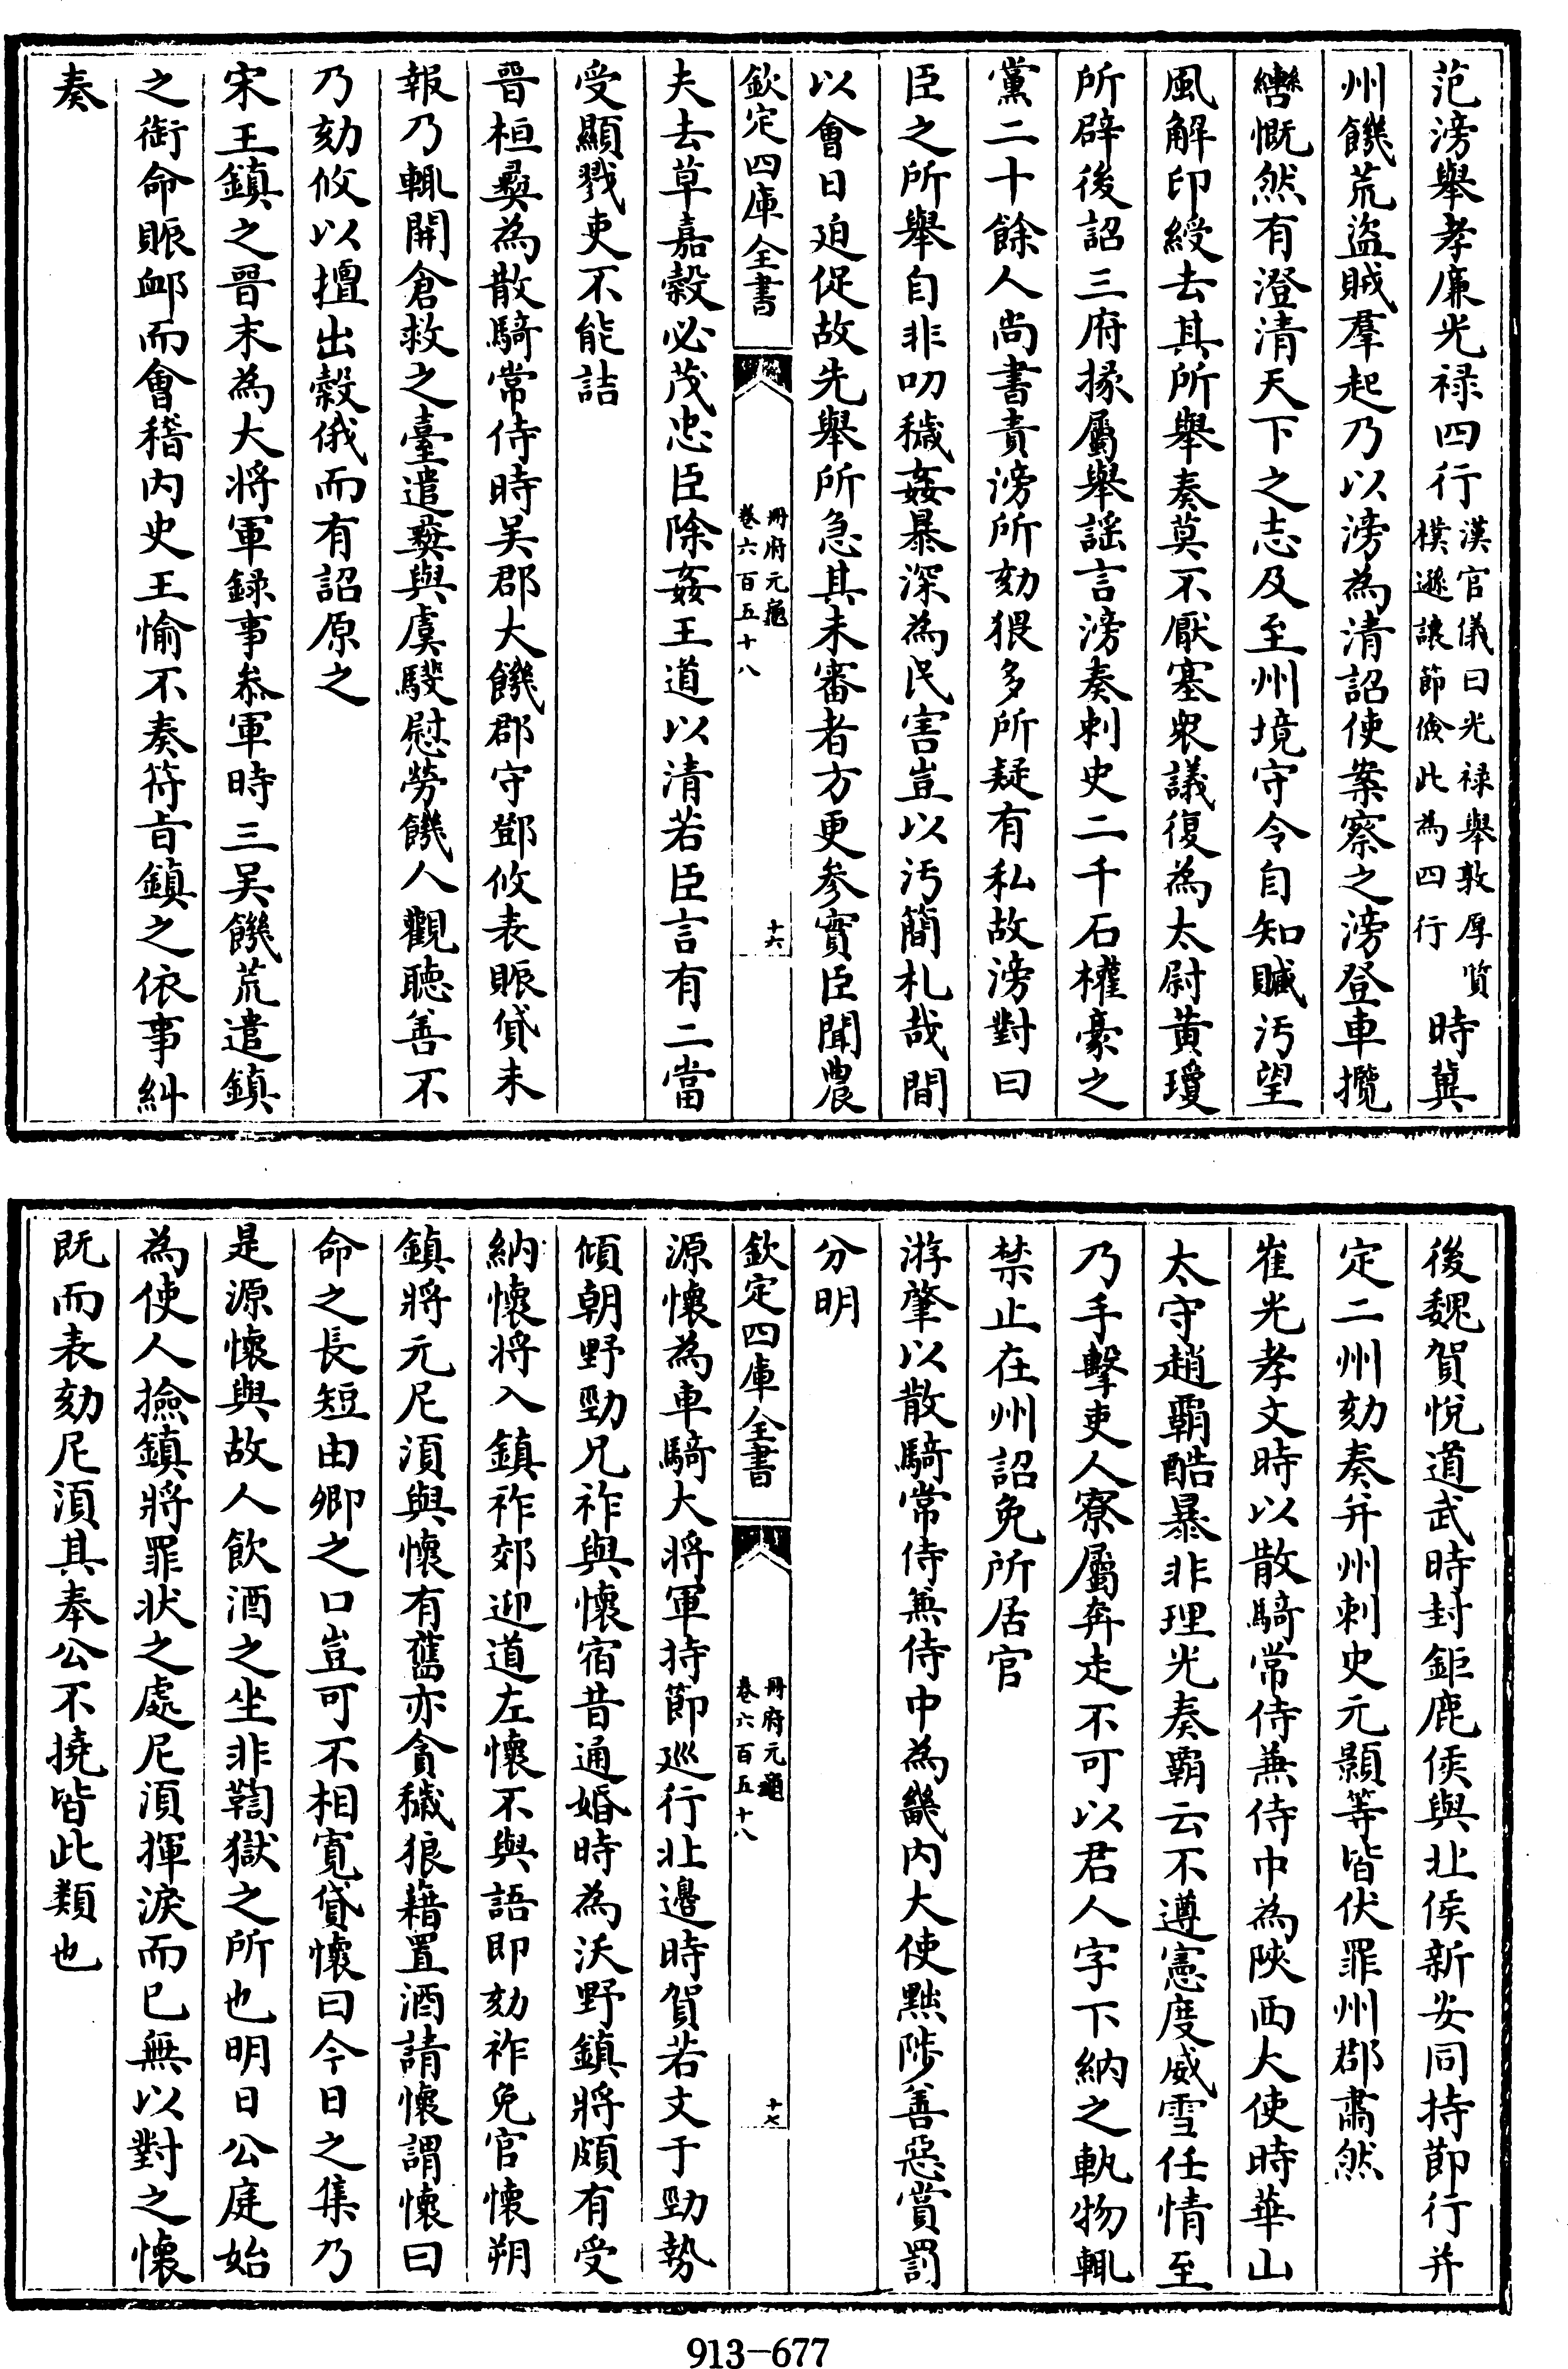 范滂舉孝廉光禄四行漢官儀曰光禄舉敦厚質樸遜讓節儉此為四行時冀
州饑荒盜賊羣起乃以滂為清詔使案察之滂登車攬
轡慨然有澄清天下之志及至州境守令自知贓汚望
風解印綬去其所舉奏莫不厭塞衆議復為太尉黄瓊
所辟後詔三府掾屬舉謡言滂奏刺史二千石權豪之
黨二十餘人尚書責滂所劾猥多所疑有私故滂對曰
臣之所舉自非叨穢姦暴深為民害豈以汚簡札哉間
以會日迫促故先舉所急其未審者方更參實臣聞農
欽定四庫全書
冊府元龜
卷六百五十八
十六
夫去草嘉穀必茂忠臣除姦王道以清若臣言有二當
受顯戮吏不能詰
晉桓彞為散騎常侍時吴郡大饑郡守鄧攸表賑貸未
報乃輒開倉救之臺遣彞與虞𩥁慰勞饑人觀聽善不
乃劾攸以擅出榖俄而有詔原之
宋王鎮之晉末為大將軍録事叅軍時三吴饑荒遣鎮
之銜命賑䘏而會稽内史王愉不奏符旨鎮之依事糾
奏
後魏賀悦道武時封鉅鹿侯與北侯新安同持節行并
定二州劾奏并州刺史元顯等皆伏罪州郡肅然
崔光孝文時以散騎常侍兼侍中為陜西大使時華山
太守趙霸酷暴非理光奏霸云不遵憲度威雪任情至
乃手擊吏人寮屬奔走不可以君人字下納之軌物輒
禁止在州詔免所居官
游肇以散騎常侍兼侍中為畿内大使黜陟善惡賞罰
分明
欽定四庫全書
冊府元龜
卷六百五十八
十七
源懷為車騎大將軍持節巡行北邊時賀若丈于勁勢
傾朝野勁兄祚與懷宿昔通婚時為沃野鎮將頗有受
納懷將入鎮祚郊迎道左懷不與語即劾祚免官懷朔
鎮將元尼湏與懷有舊亦貪穢狼藉置酒請懷謂懷曰
命之長短由卿之口豈可不相寛貸懷曰今日之集乃
是源懷與故人飲酒之坐非鞫獄之所也明日公庭始
為使人撿鎮將罪状之處尼湏揮淚而已無以對之懷
既而表劾尼湏其奉公不撓皆此類也
913-677